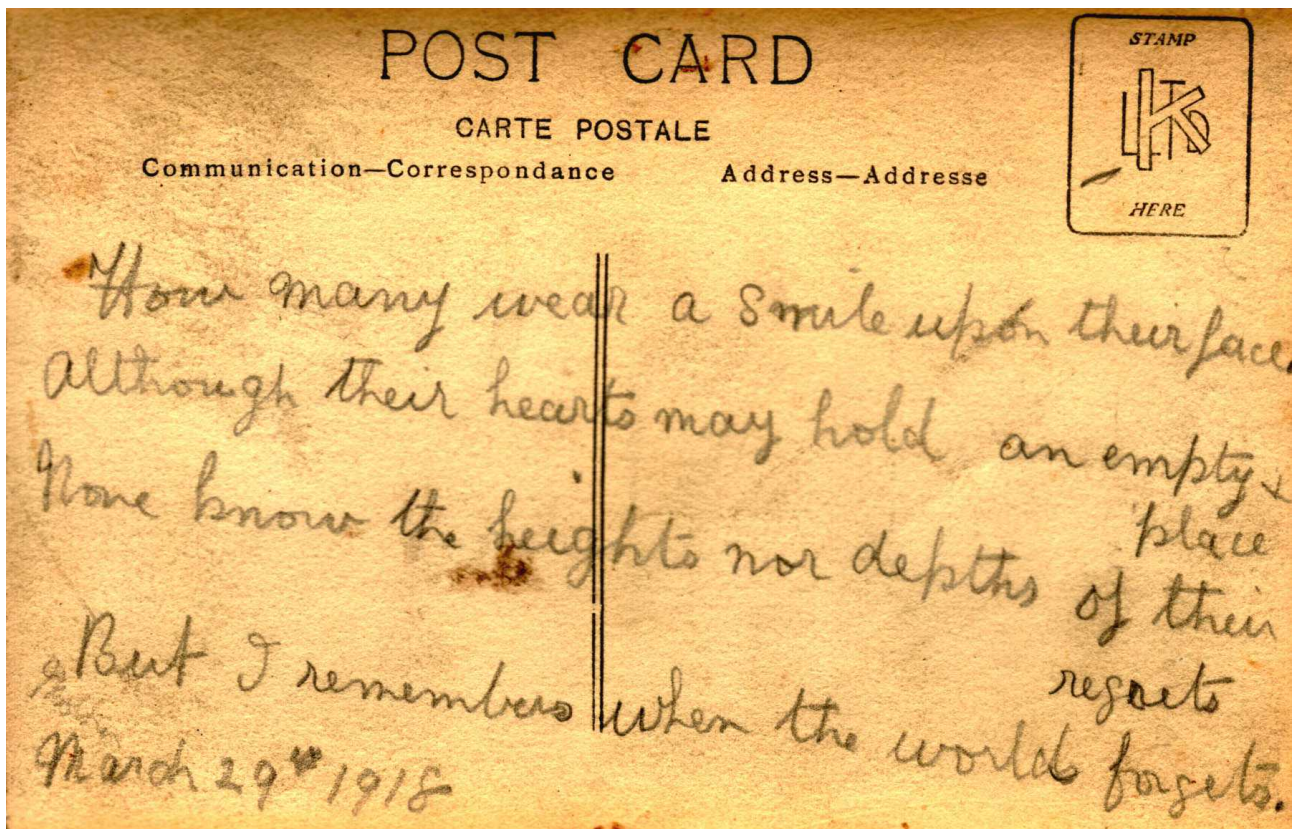 POST CARD
CARTE POSTALE
Communication—Correspondance
Address—Addresse
STAMP
HERE
How many wear a smile upon their face
Although their hearts may hold an empty
place
None know the heights nor depths of their
regrets
But I remembers when the world forgets.
March 29th 1918